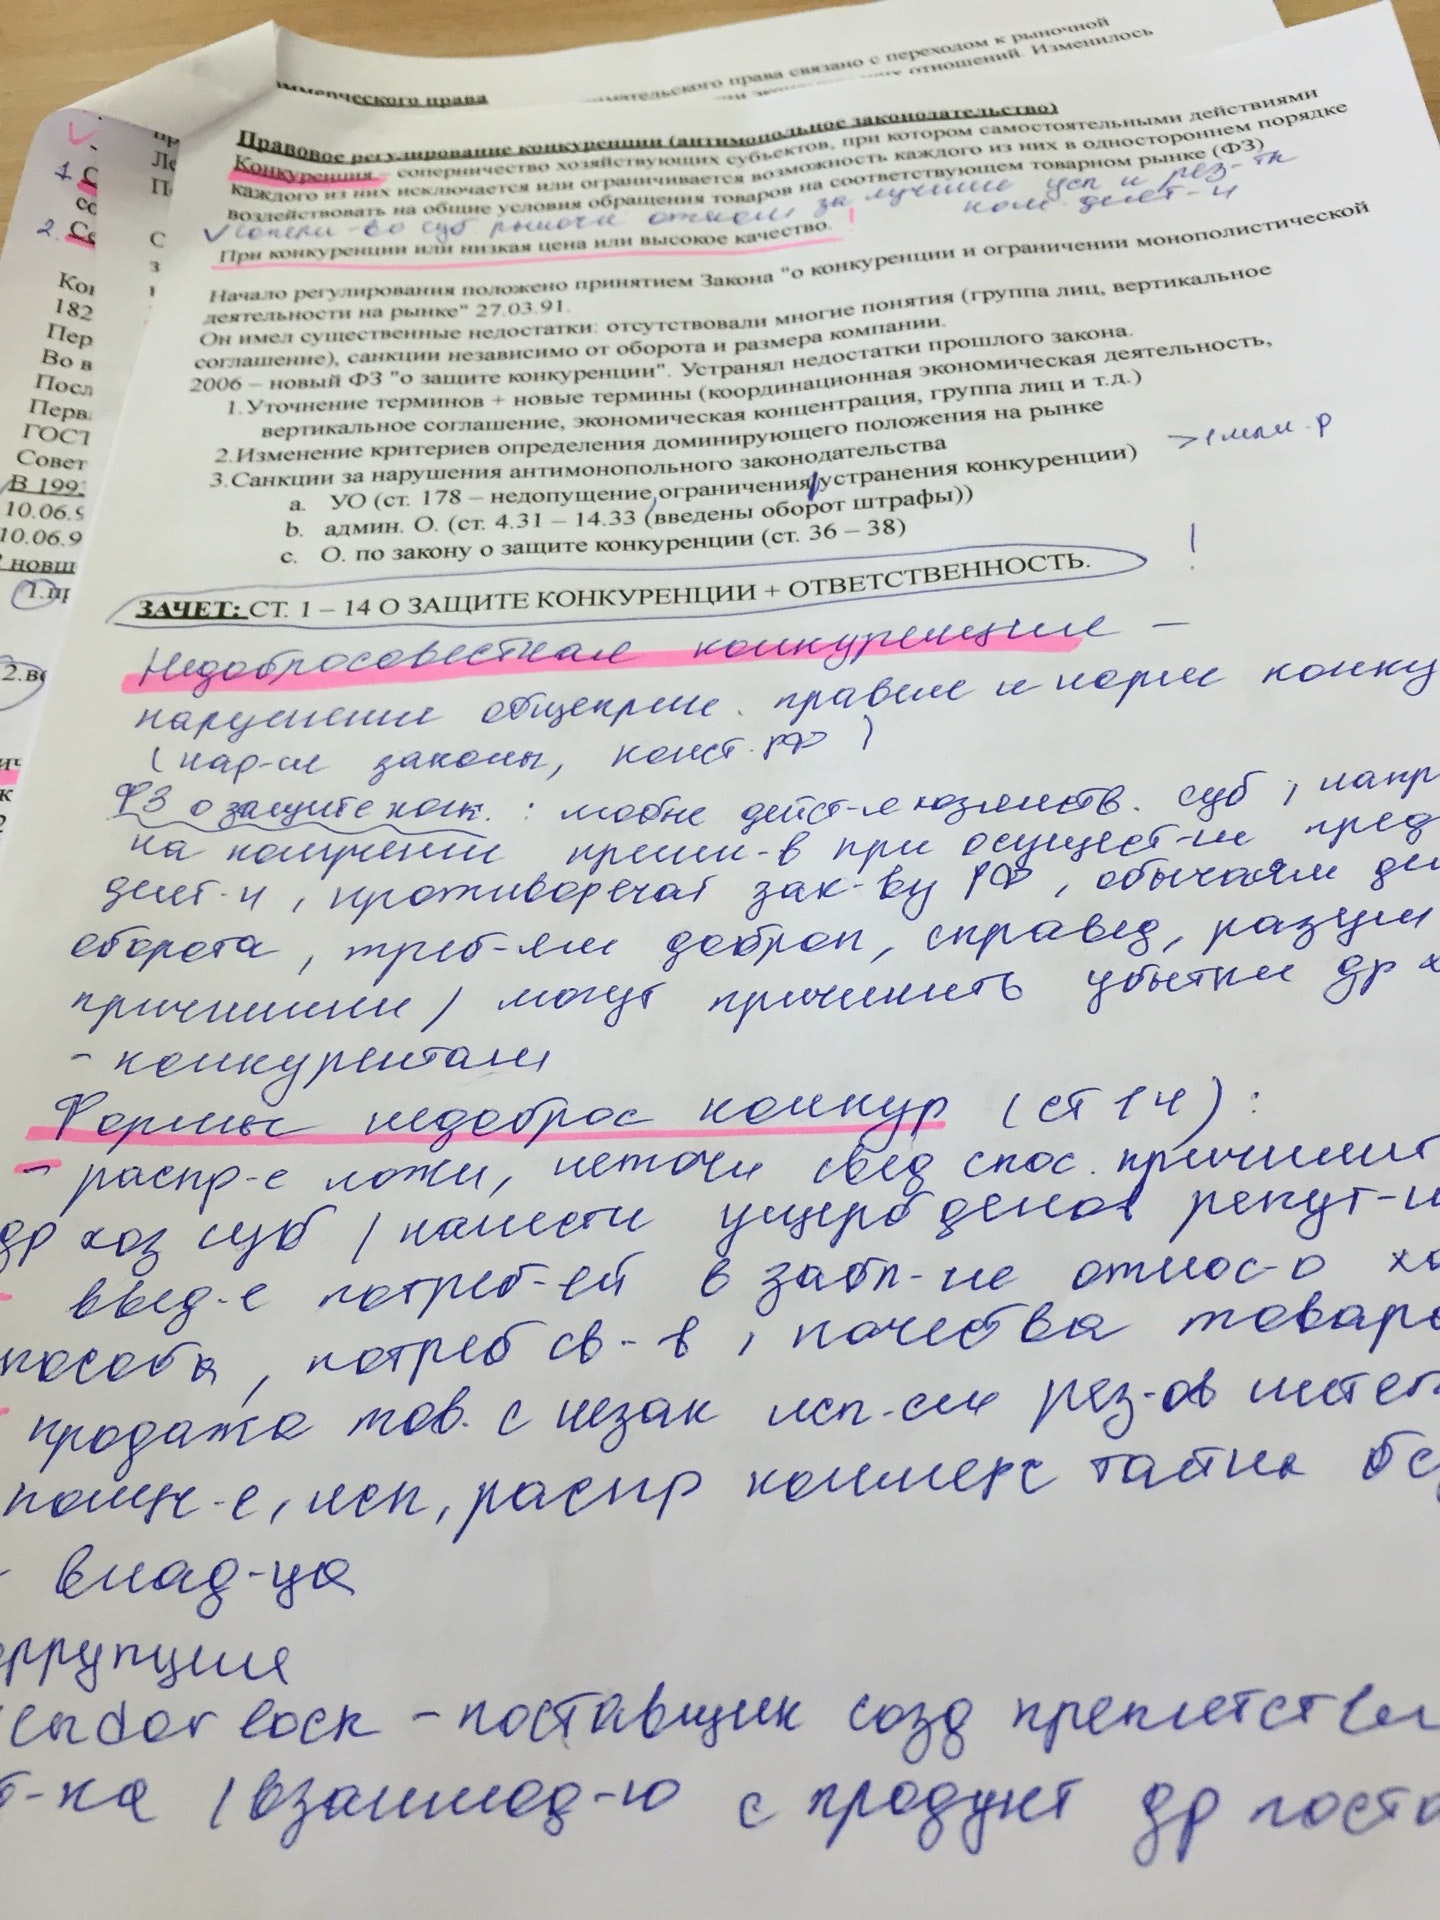 ммерческого права
имательского права связано с переходом к рыночной
отношений. Изменилось
Правовое регулирование конкуренции (антимопольное законодательство)
Конкуренция – соперничество хозяйствующих субъектов, при котором самостоятельными действиями
каждого из них исключается или ограничивается возможность каждого из них в одностороннем порядке
воздействовать на общие условия обращения товаров на соответствующем товарном рынке (ФЗ)
сопер-во суб рыночн отнош за лучшие усл и рез-ты
ком деят-и
При конкуренции или низкая цена или высокое качество. !
Начало регулирования положено принятием Закона "о конкуренции и ограничении монополистической
деятельности на рынке" 27.03.91.
Он имел существенные недостатки: отсутствовали многие понятия (группа лиц, вертикальное
соглашение), санкции независимо от оборота и размера компании.
2006 – новый ФЗ "о защите конкуренции". Устранял недостатки прошлого закона.
1. Уточнение терминов + новые термины (координационная экономическая деятельность,
вертикальное соглашение, экономическая концентрация, группа лиц и т.д.)
2. Изменение критериев определения доминирующего положения на рынке
3. Санкции за нарушения антимонопольного законодательства
>1 млн. р
a. УО (ст. 178 – недопущение, ограничения/устранения конкуренции)
b. админ. О. (ст. 4.31 – 14.33 (введены оборот штрафы))
c. О. по закону о защите конкуренции (ст. 36 – 38)
ЗАЧЕТ: СТ. 1 – 14 О ЗАЩИТЕ КОНКУРЕНЦИИ + ОТВЕТСТВЕННОСТЬ. !
Недобросовестная конкуренция –
нарушение общеприн. правил и норм конку
(нар-ся законы, конст. РФ)
ФЗ о защите конк. : любые дейст-я хозяйств. суб, напр
на получение преим-в при осущест-и пред
деят-и, противоречат зак-ву РФ, обычаям де
оборота, треб-ям доброп, справед, разумн
причинили / могут причинить убытки др х
- конкурентам
Формы недоброс конкур (ст 14):
- распр-е ложн, неточн свед спос. причинит
др хоз суб / нанести ущерб делов репут-и
- введ-е потреб-ей в забл-ие относ-о ха
пособа, потреб св-в, качества товаро
- продажа тов. с незак исп-ем рез-ов интел
получ-е, исп, распр коммерс тайны бе
- влад-ца
оррупция
endor lock – поставщик созд препятстви
/взаимод-ю с продукт др поста
1. С
со
2. Се
Кон
182
Пер
Во в
Посл
Перв
ГОСТ
Совет
В 199
10.06.9
10.06.9
новш
1.пр
2.во